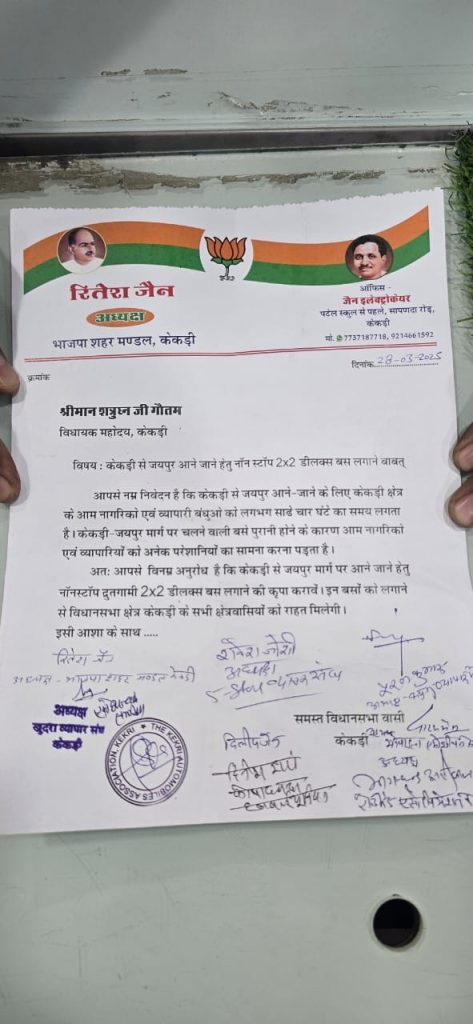 रितेश जैन
अध्यक्ष
भाजपा शहर मण्डल, केकड़ी
ऑफिस -
जैन इलेक्ट्रोकेयर
पटेल स्कूल से पहले, सापणदा रोड़,
केकड़ी
मो. 7737187718, 9214661592
क्रमांक
दिनांक 28-03-2025
श्रीमान शत्रुघ्न जी गौतम
विधायक महोदय, केकड़ी
विषय : केकड़ी से जयपुर आने जाने हेतु नॉन स्टॉप 2x2 डीलक्स बस लगाने बाबत्
आपसे नम्र निवेदन है कि केकड़ी से जयपुर आने-जाने के लिए केकड़ी क्षेत्र
के आम नागरिको एवं व्यापारी बंधुओ को लगभग साडे चार घंटे का समय लगता
है। केकड़ी-जयपुर मार्ग पर चलने वाली बसे पुरानी होने के कारण आम नागरिको
एवं व्यापारियों को अनेक परेशानियों का सामना करना पड़ता है।
अतः आपसे विनम्र अनुरोध है कि केकड़ी से जयपुर मार्ग पर आने जाने हेतु
नॉनस्टॉप दुतगामी 2x2 डीलक्स बस लगाने की कृपा करावें। इन बसों को लगाने
से विधानसभा क्षेत्र केकड़ी के सभी क्षेत्रवासियों को राहत मिलेगी।
इसी आशा के साथ .....
रितेश जैन
अध्यक्ष - भाजपा शहर मण्डल केकड़ी
अध्यक्ष
खुदरा व्यापार संघ
केकड़ी
THE KEKRI AUTOMOBILES ASSOCIATION, KEKRI
अध्यक्ष
दिलीप जैन
समस्त विधानसभा वासी
केकड़ी
अध्यक्ष